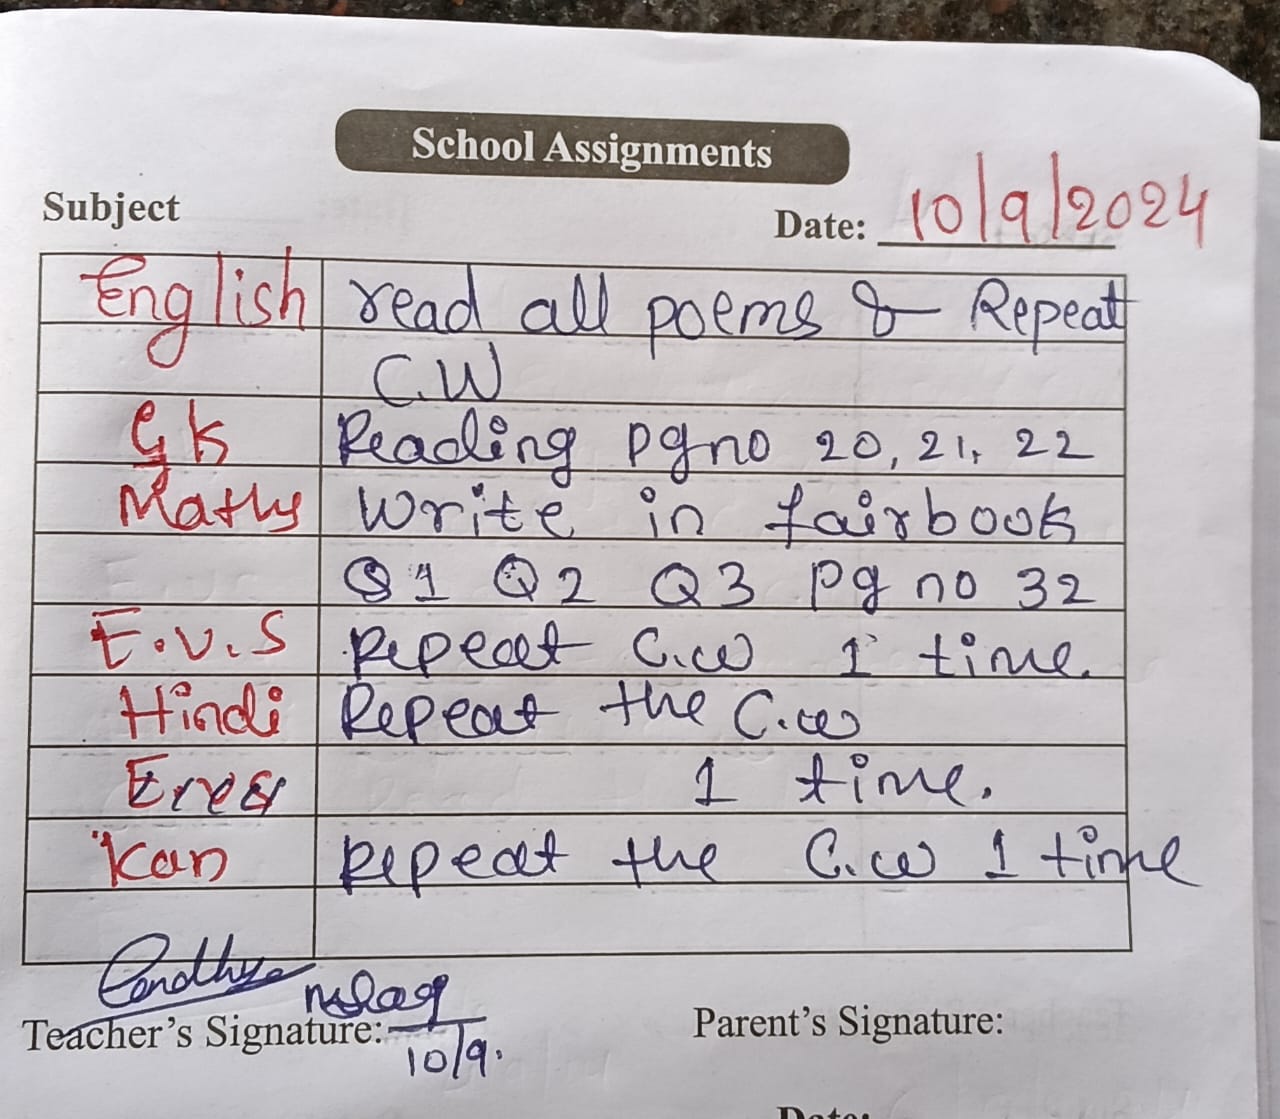 School Assignments
Subject
Date: 10/9/2024
English read all poems & Repeat
C.W
GK Reading pg no 20, 21, 22
Maths Write in fairbook
Q1 Q2 Q3 pg no 32
E.V.S Repeat C.w 1 time.
Hindi Repeat the C.w
1 time.
Kan Repeat the C.w 1 time
Teacher's Signature: 10/9.
Parent's Signature:
Date: